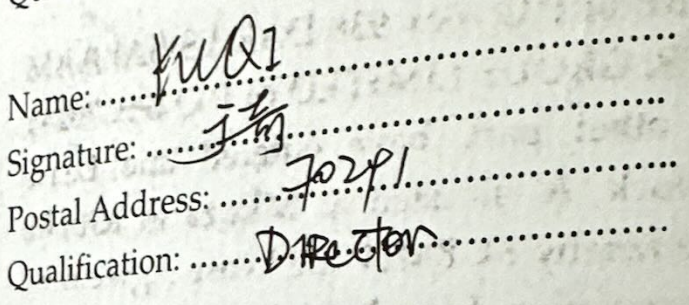 Name: YUQI
Signature: 于奇
Postal Address: 70291
Qualification: Director